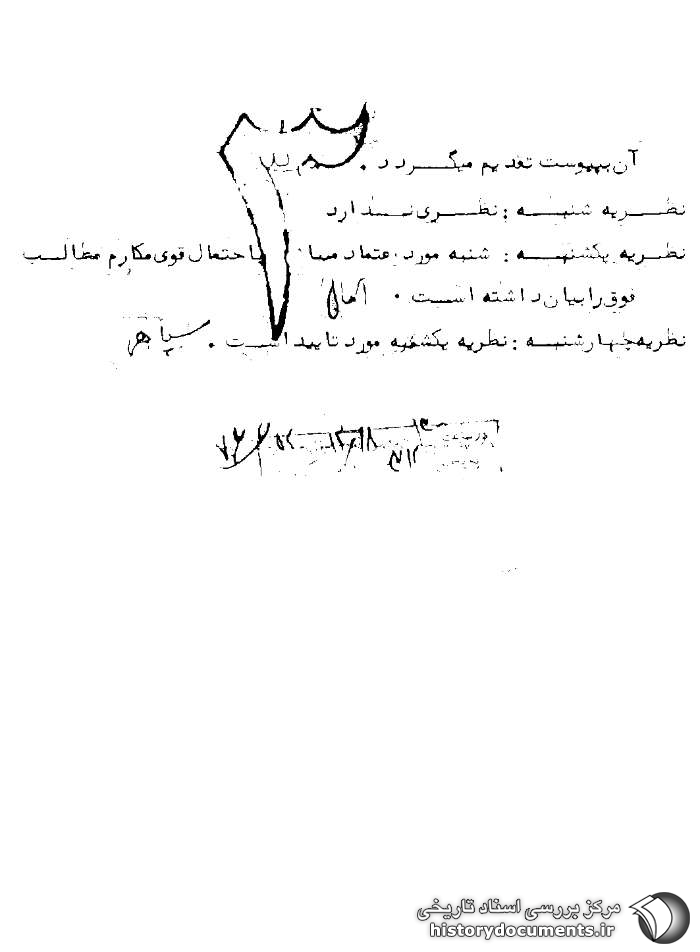 آن بپیوست تقدیم میگردد.
نظریه شنبه : نظری ندارد
نظریه یکشنبه : شنبه مورد اعتماد میباشد با احتمال قوی مکارم مطالب
فوق را بیان داشته است . آمال
نظریه چهارشنبه : نظریه یکشنبه مورد تایید است . سپاهر
مرکز بررسی اسناد تاریخی
historydocuments.ir